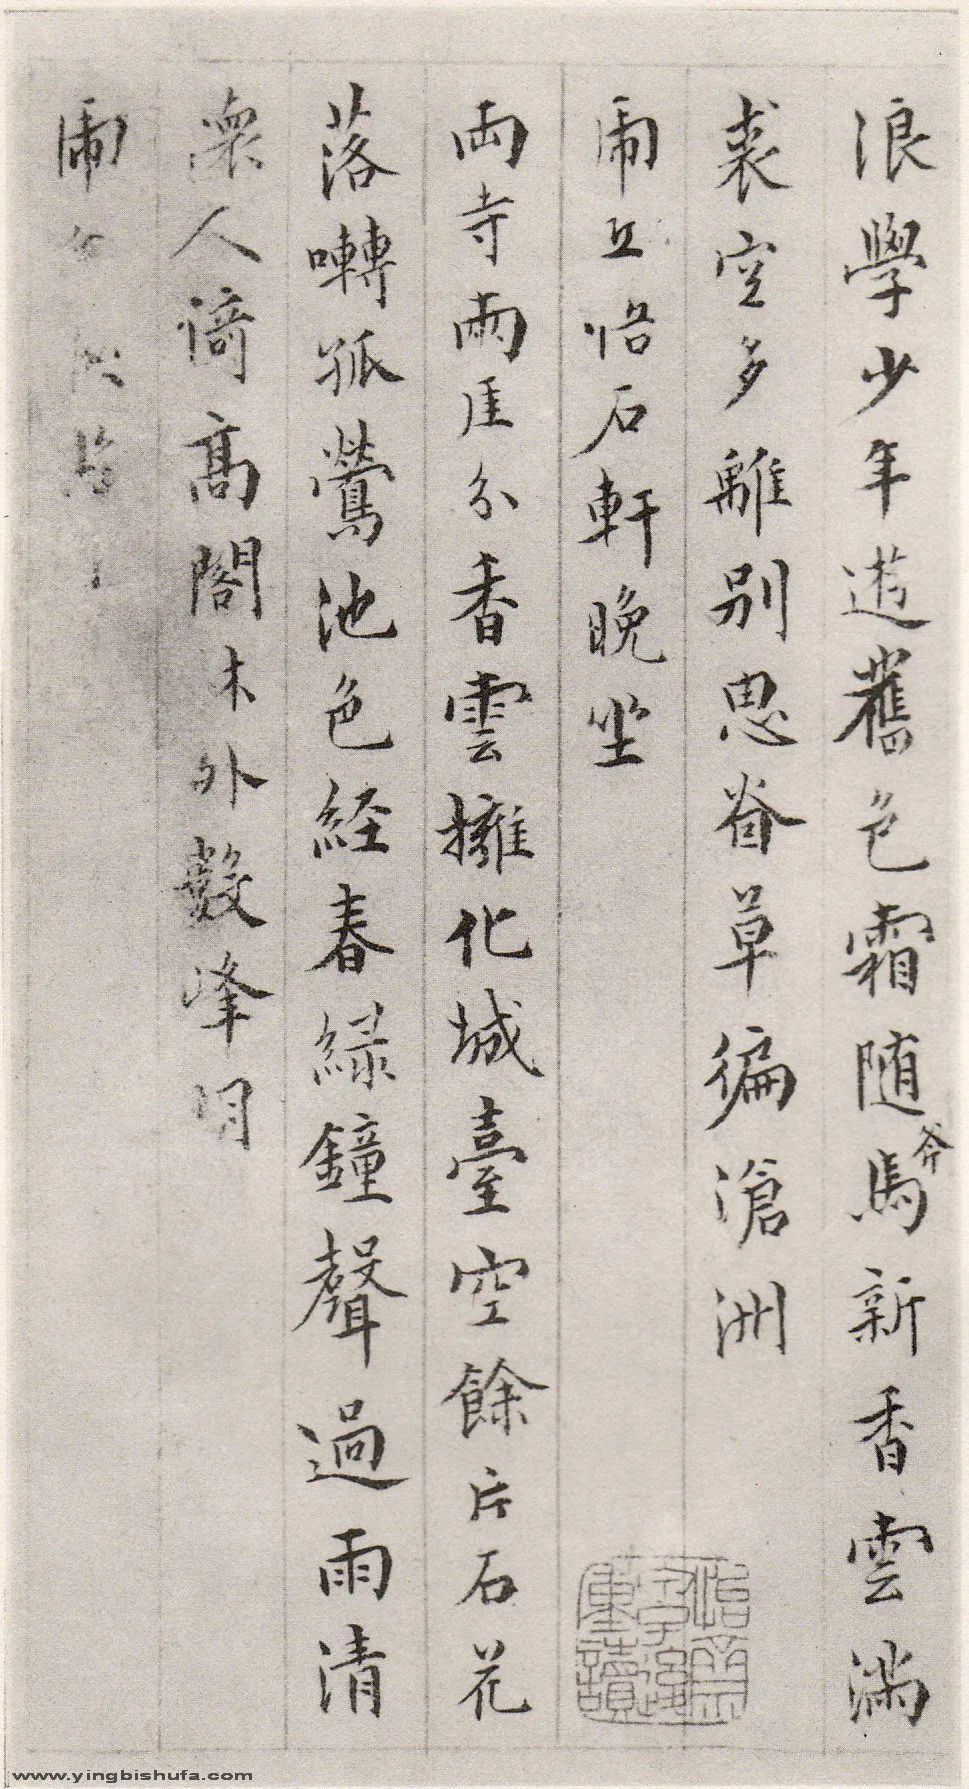 浪學少年遊舊色霜随馬新香雲滿
裘空多離別思春草徧滄洲
虎丘悟石軒晚坐
両寺兩厓分香雲擁化城臺空餘片石花
落囀孤鶯池色経春緑鐘聲過雨清
懷人倚高閣木外數峰明
虎
www.yingbishufa.com